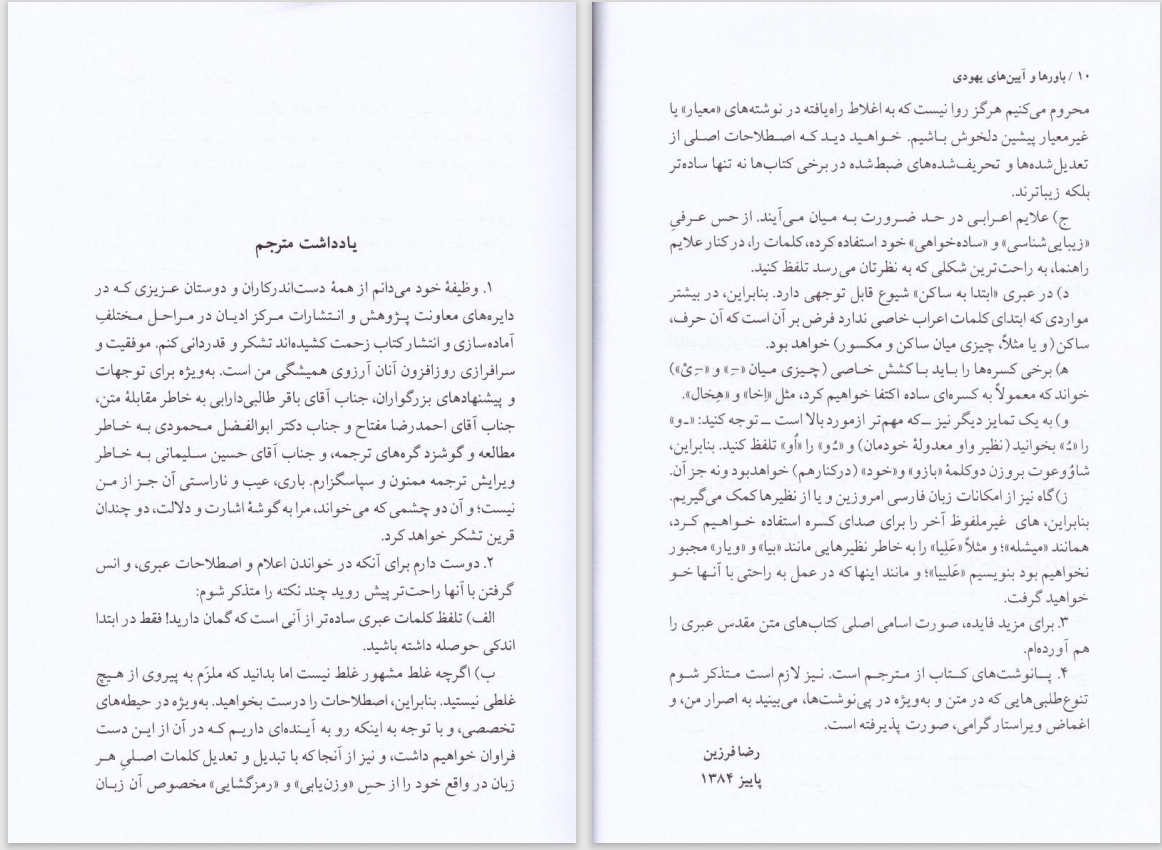 یادداشت مترجم
۱. وظیفهٔ خود می‌دانم از همهٔ دست‌اندرکاران و دوستان عزیزی که در
دایره‌های معاونت پژوهش و انتشارات مرکز ادیان در مراحل مختلفِ
آماده‌سازی و انتشار کتاب زحمت کشیده‌اند تشکر و قدردانی کنم. موفقیت و
سرافرازی روزافزون آنان آرزوی همیشگی من است. به‌ویژه برای توجهات
و پیشنهادهای بزرگواران، جناب آقای باقر طالبی‌دارابی به خاطر مقابلهٔ متن،
جناب آقای احمدرضا مفتاح و جناب دکتر ابوالفضل محمودی به خاطر
مطالعه و گوشزد گره‌های ترجمه، و جناب آقای حسین سلیمانی به خاطر
ویرایش ترجمه ممنون و سپاسگزارم. باری، عیب و ناراستی آن جز از من
نیست؛ و آن دو چشمی که می‌خواند، مرا به گوشهٔ اشارت و دلالت، دو چندان
قرین تشکر خواهد کرد.
۲. دوست دارم برای آنکه در خواندن اعلام و اصطلاحات عبری، و انس
گرفتن با آنها راحت‌تر پیش روید چند نکته را متذکر شوم:
الف) تلفظ کلمات عبری ساده‌تر از آنی است که گمان دارید! فقط در ابتدا
اندکی حوصله داشته باشید.
ب) اگرچه غلط مشهور غلط نیست اما بدانید که ملزَم به پیروی از هیچ
غلطی نیستید. بنابراین، اصطلاحات را درست بخواهید. به‌ویژه در حیطه‌های
تخصصی، و با توجه به اینکه رو به آینده‌ای داریم که در آن از این دست
فراوان خواهیم داشت، و نیز از آنجا که با تبدیل و تعدیل کلمات اصلیِ هر
زبان در واقع خود را از حسِ «وزن‌یابی» و «رمزگشایی» مخصوص آن زبان
۱۰ / باورها و آیین‌های یهودی
محروم می‌کنیم هرگز روا نیست که به اغلاط راه‌یافته در نوشته‌های «معیار» یا
غیرمعیار پیشین دلخوش باشیم. خواهید دید که اصطلاحات اصلی از
تعدیل‌شده‌ها و تحریف‌شده‌های ضبط‌شده در برخی کتاب‌ها نه تنها ساده‌تر
بلکه زیباترند.
ج) علایم اعرابی در حد ضرورت به میان می‌آیند. از حس عرفیِ
«زیبایی‌شناسی» و «ساده‌خواهی» خود استفاده کرده، کلمات را، در کنار علایم
راهنما، به راحت‌ترین شکلی که به نظرتان می‌رسد تلفظ کنید.
د) در عبری «ابتدا به ساکن» شیوع قابل توجهی دارد. بنابراین، در بیشتر
مواردی که ابتدای کلمات اعراب خاصی ندارد فرض بر آن است که آن حرف،
ساکن (و یا مثلاً، چیزی میان ساکن و مکسور) خواهد بود.
ه) برخی کسره‌ها را باید با کشش خاصی (چیزی میان «ـِ» و «ـِیْ»)
خواند که معمولاً به کسره‌ای ساده اکتفا خواهیم کرد، مثل «اِخا» و «هِخال».
و) به یک تمایز دیگر نیز ــ که مهم‌تر از مورد بالا است ــ توجه کنید: «ـو»
را «ـُ» بخوانید (نظیر واو معدولهٔ خودمان) و «ـُو» را «اُو» تلفظ کنید. بنابراین،
شاوُوعوت بر وزن دو کلمهٔ «بازو» و «خود» (در کنار هم) خواهد بود و نه جز آن.
ز) گاه نیز از امکانات زبان فارسی امروزین و یا از نظیرها کمک می‌گیریم.
بنابراین، های غیرملفوظ آخر را برای صدای کسره استفاده خواهیم کرد،
همانند «میشله»؛ و مثلاً «عَلِیا» را به خاطر نظیرهایی مانند «بیا» و «ویار» مجبور
نخواهیم بود بنویسیم «عَلییا»؛ و مانند اینها که در عمل به راحتی با آنها خو
خواهید گرفت.
۳. برای مزید فایده، صورت اسامی اصلی کتاب‌های متن مقدس عبری را
هم آورده‌ام.
۴. پانوشت‌های کتاب از مترجم است. نیز لازم است متذکر شوم
تنوع‌طلبی‌هایی که در متن و به‌ویژه در پی‌نوشت‌ها، می‌بینید به اصرار من، و
اغماض ویراستار گرامی، صورت پذیرفته است.
رضا فرزین
پاییز ۱۳۸۴